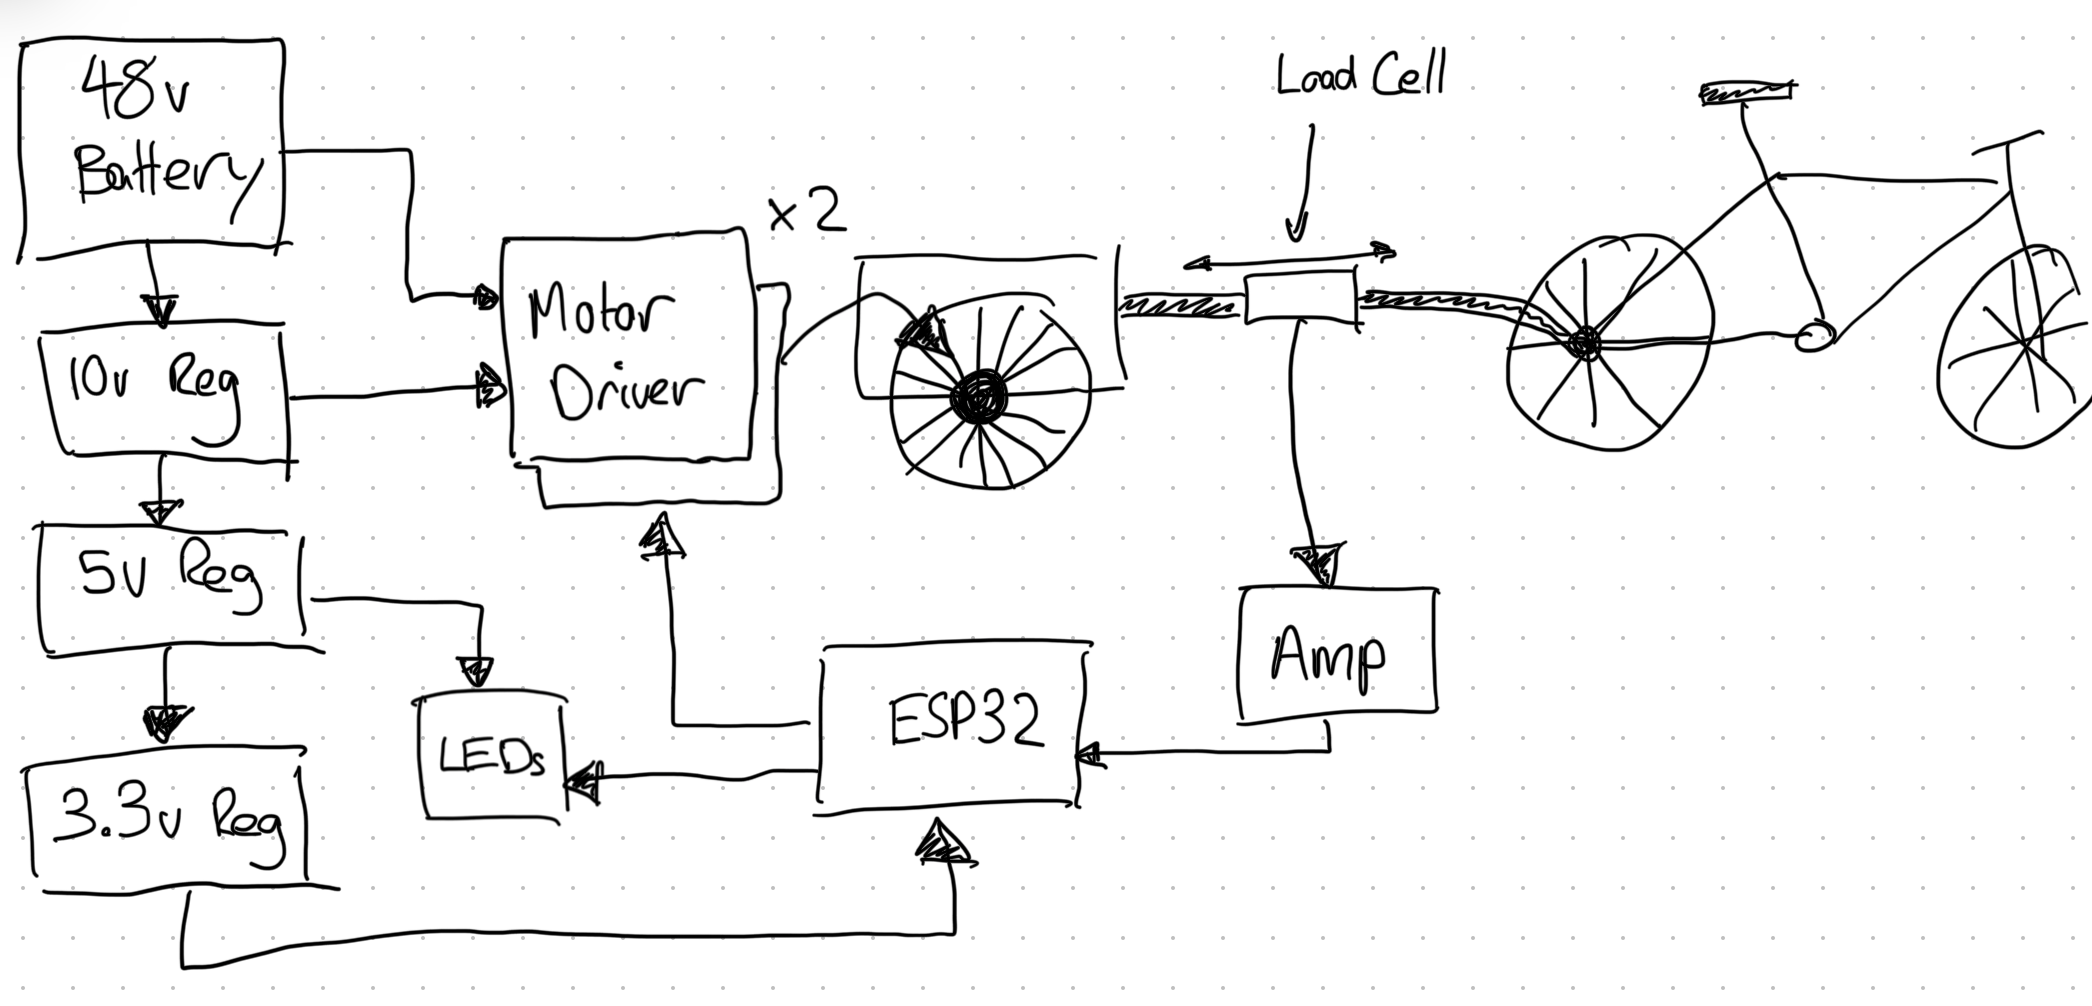 48v
Battery
10v Reg
5v Reg
3.3v Reg
x2
Motor
Driver
LEDs
ESP32
Load Cell
Amp